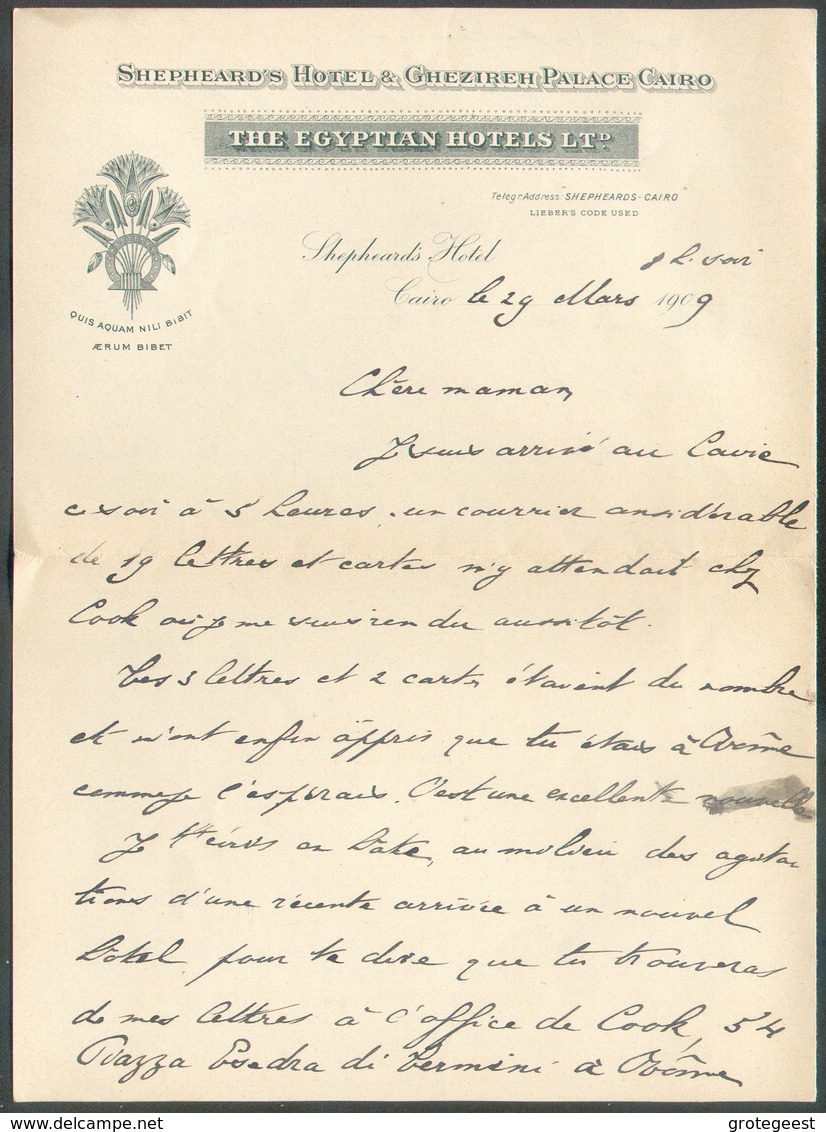 SHEPHEARD'S HOTEL & GHEZIREH PALACE CAIRO
THE EGYPTIAN HOTELS LTD.
Telegr. Address: "SHEPHEARDS-CAIRO"
LIEBER'S CODE USED
Shepheard's Hotel
8 h. soir
Cairo le 29 Mars 1909
QUIS AQUAM NILI BIBIT
ÆRUM BIBET
Chère maman,
Je suis arrivé au Caire
ce soir à 5 heures. un courrier considérable
de 19 lettres et cartes m'y attendait chez
Cook où je me suis rendu aussitôt.
Tes 3 lettres et 2 cartes étaient du nombre
et m'ont enfin appris que tu étais à Rome
comme je l'espérais. C'est une excellente nouvelle
Je t'écris en hâte, au milieu des agita
tions d'une récente arrivée à un nouvel
hôtel pour te dire que tu trouveras
de mes lettres à l'office de Cook, 54
Piazza Esedra di Termini à Rome
grotegeest